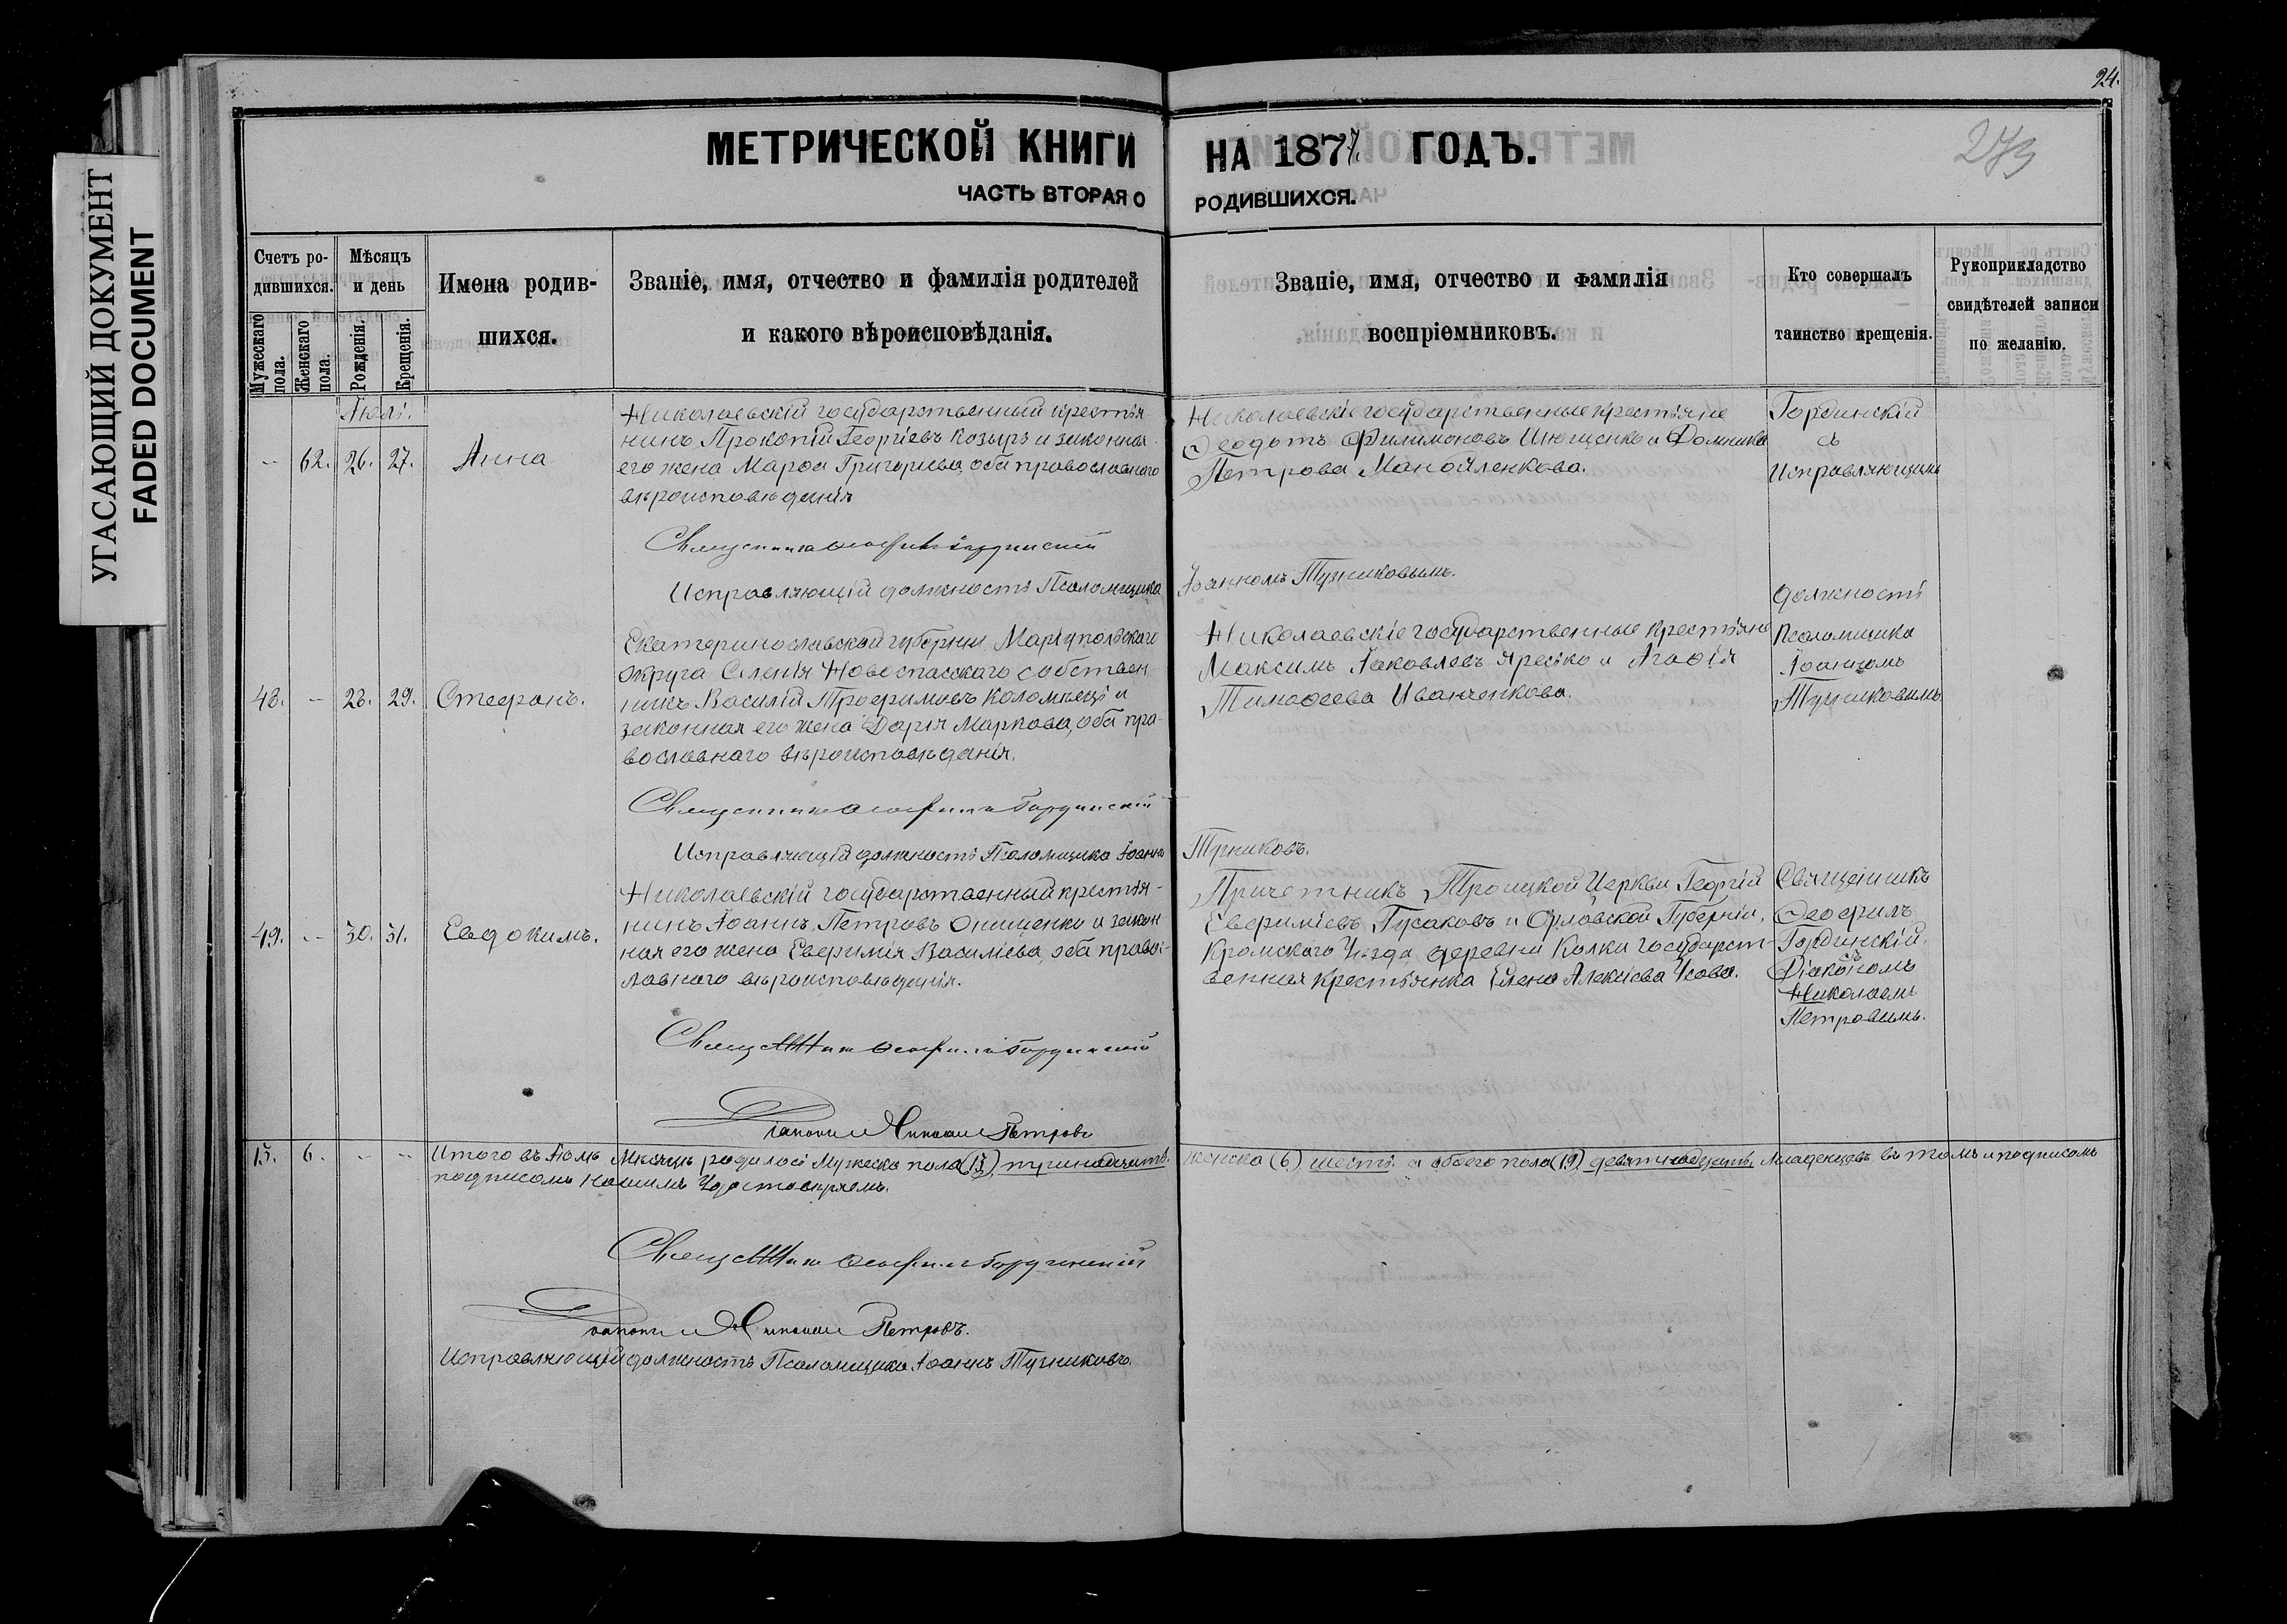 УГАСАЮЩИЙ ДОКУМЕНТ
FADED DOCUMENT
24.
273
МЕТРИЧЕСКОЙ КНИГИ НА 1877 ГОДЪ.
ЧАСТЬ ВТОРАЯ О РОДИВШИХСЯ.
Счетъ родившихся.
Мужескаго пола.
Женскаго пола.
Мѣсяцъ и день
Рожденія.
Крещенія.
Имена родив-
шихся.
Званіе, имя, отчество и фамилія родителей
и какого вѣроисповѣданія.
Званіе, имя, отчество и фамилія
воспріемниковъ.
Кто совершалъ
таинство крещенія.
Рукоприкладство
свидѣтелей записи
по желанію.
Іюль.
-- 62. 26. 27. Анна
Николаевскій государственный крестья-
нинъ Прокопій Георгіевъ Козырь и законная
его жена Марѳа Григорьева, оба православнаго
вѣроисповѣданія
Николаевскіе государственные крестьяне
Ѳеодотъ Филимоновъ Ищенко и Домника
Петрова Манойленкова.
Гординскій
съ
Исправляющимъ
Священникъ Ѳеофилъ Гординскій
Исправляющій должность Псаломщика
Іоанномъ Тузниковымъ.
должность
Псаломщика
Іоанномъ
Тузниковымъ
48. -- 28. 29. Стефанъ.
Екатеринославской губерніи, Маріупольскаго
округа Селенія Новоспасскаго собствен
никъ Василій Трофимовъ Коломыецъ и
законная его жена Дарія Маркова, оба пра-
вославнаго вѣроисповѣданія.
Николаевскіе государственные крестьяне
Максимъ Іаковлевъ Яресько и Агафія
Тимофеева Иванченкова.
Священникъ Ѳеофилъ Гординскій
Исправляющій должность Псаломщика Іоаннъ
Тузниковъ.
49. -- 30. 31. Евдокимъ.
Николаевскій государственный крестья-
нинъ Іоаннъ Петровъ Онищенко и закон
ная его жена Евфимія Василіева, оба правос-
лавнаго вѣроисповѣданія.
Причетникъ Троицкой Церкви Георгій
Евфиміевъ Гусаковъ и Орловской Губерніи,
Кромскаго Уѣзда деревни Колки государст-
венная крестьянка Елена Алексіева Усова.
Священникъ
Ѳеофилъ
Гординскій
съ
Діакономъ
Николаемъ
Петровымъ.
Священникъ Ѳеофилъ Гординскій
Діаконъ Николай Петровъ
13. 6. -- --
Итого въ Іюль Мѣсяцъ родилось Мужеска пола (13) тринадцать.
женска (6) шесть а обоего пола (19) девятнадцать Младенцевъ въ томъ и подписомъ
подписомъ нашимъ Удостовѣряемъ.
Священникъ Ѳеофилъ Гординскій
Діаконъ Николай Петровъ.
Исправляющій должность Псаломщика Іоаннъ Тузниковъ.